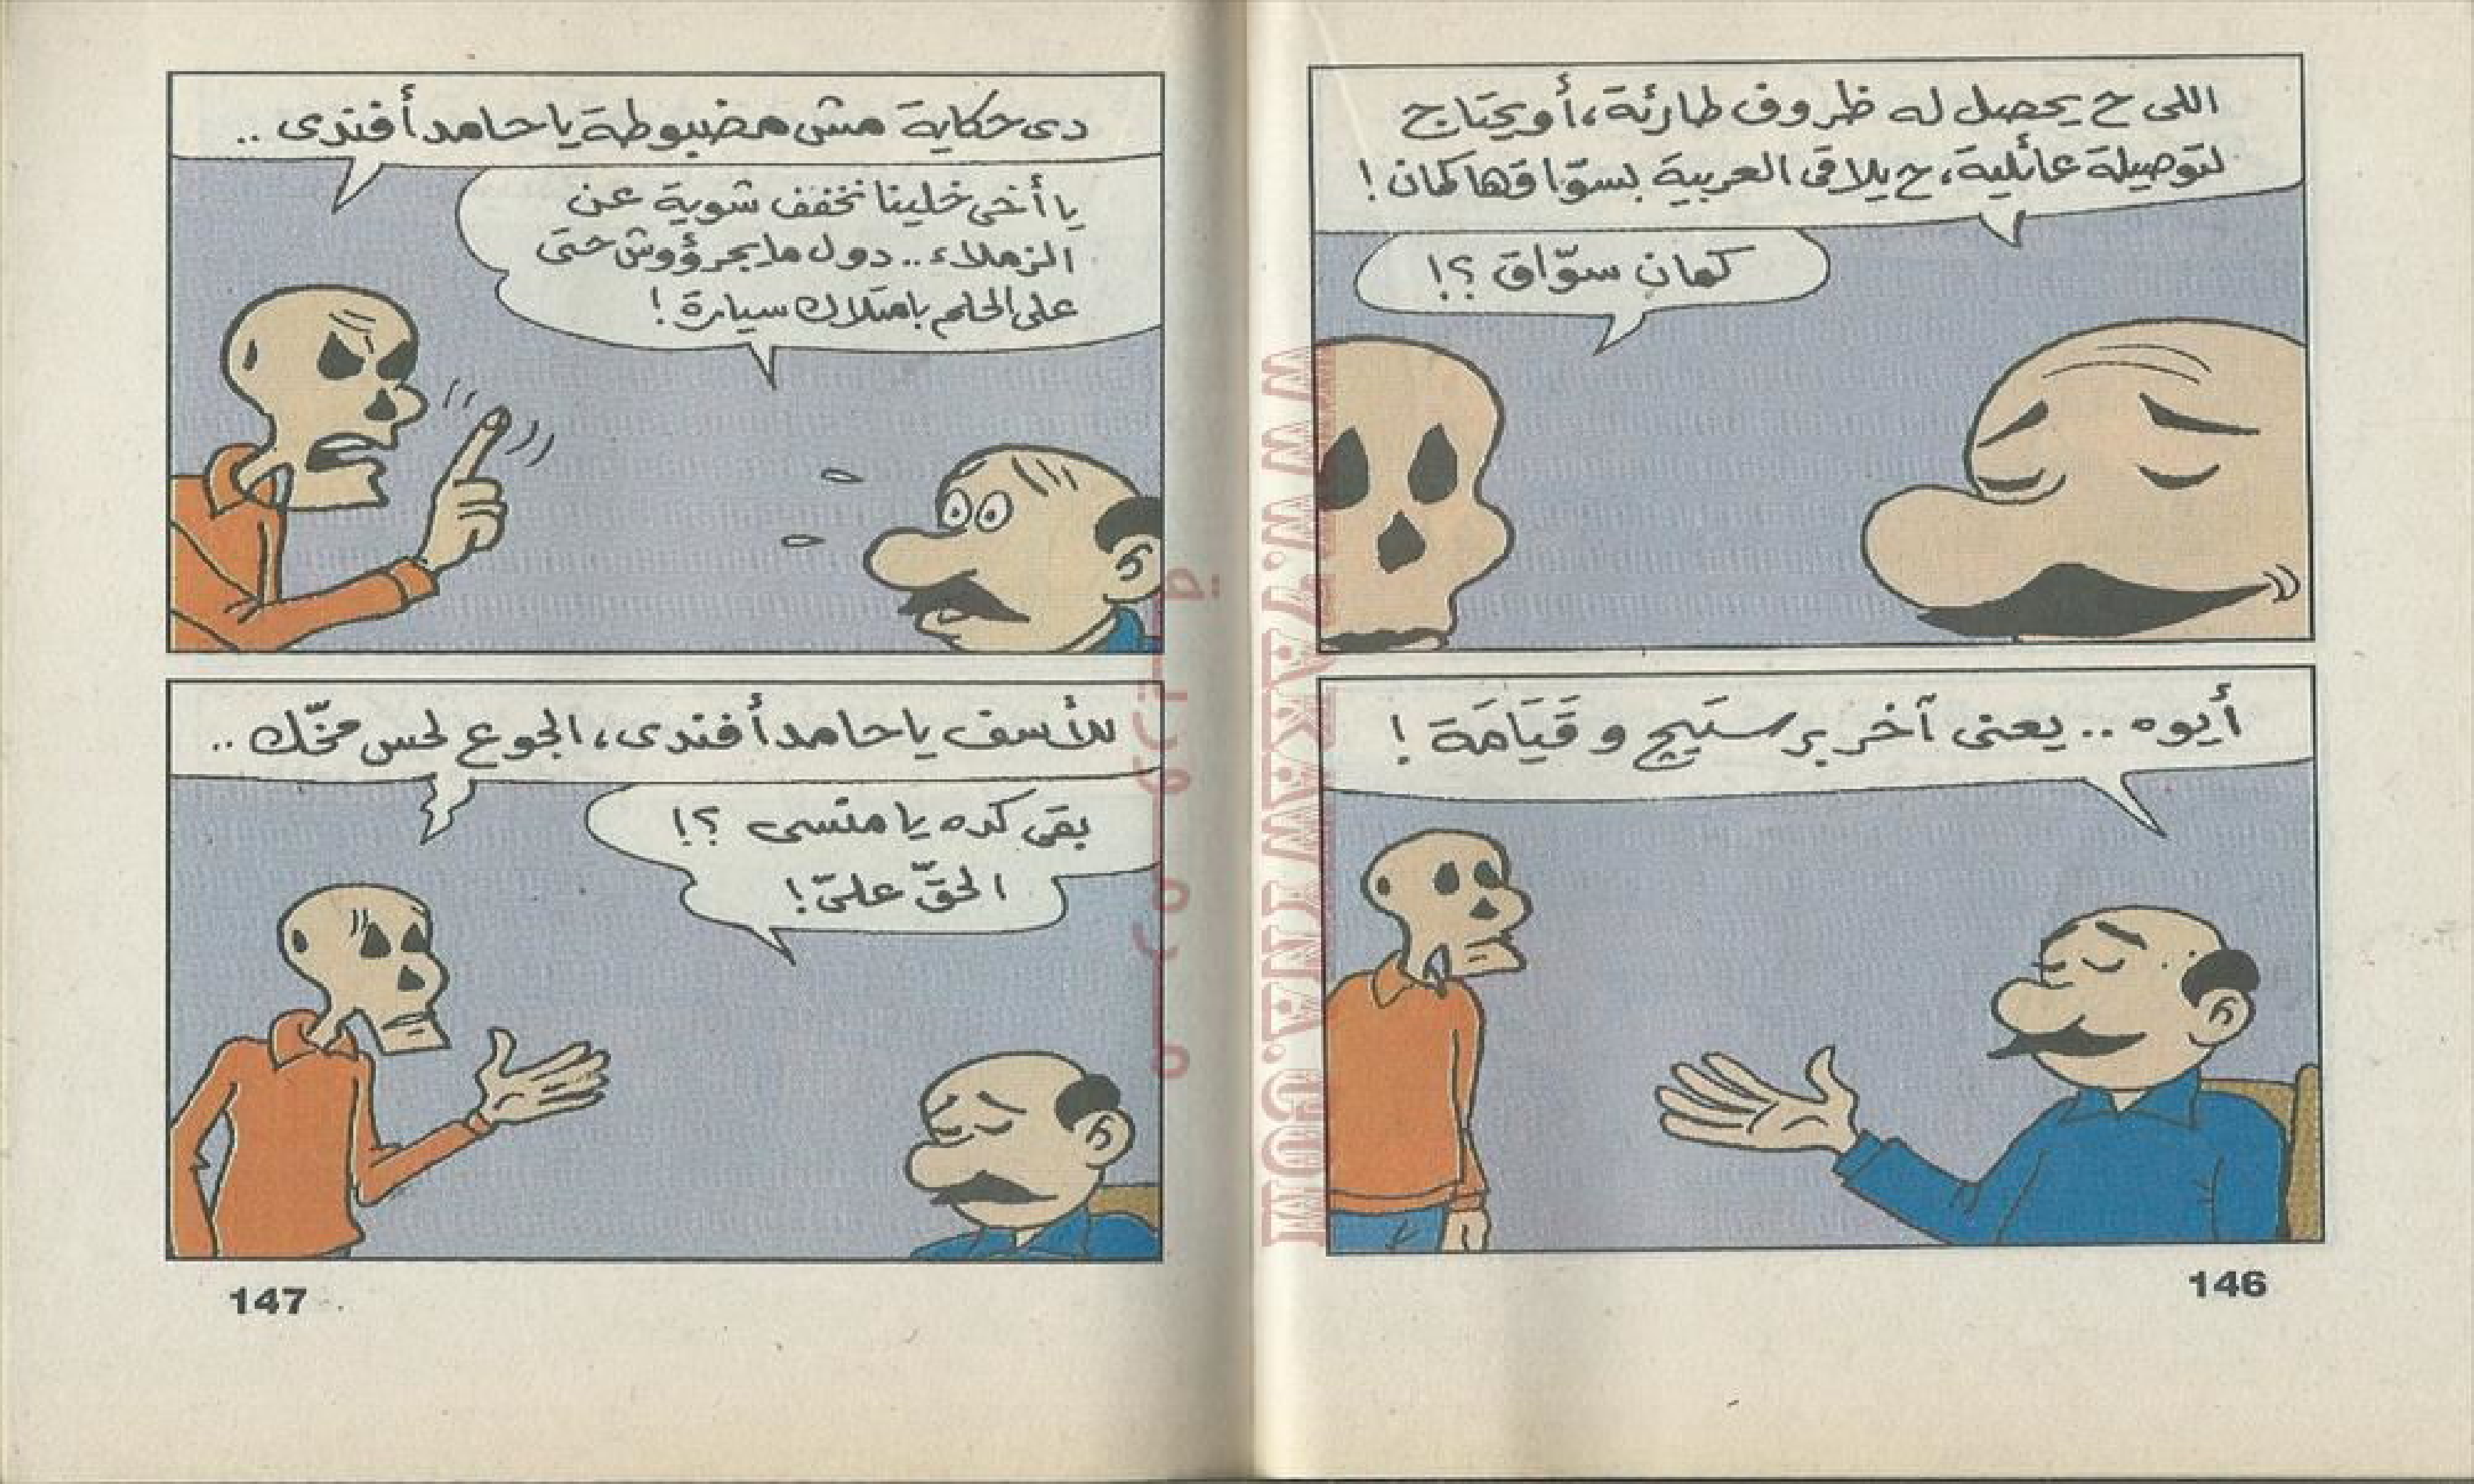 اللى ح يحصل له ظروف طارئة، أو يحتاج
لتوصيلة عائلية، ح يلاقى العربية بسوّاقها كمان !
كمان سوّاق ؟!
أيوه .. يعنى آخر برستيچ و قَيَامَة !
146
دى حكاية مش مضبوطة يا حامد أفندى ..
يا أخى خلينا نخفف شوية عن
الزملاء .. دول ما يجرؤوش حتى
على الحلم بامتلاك سيارة !
للأسف يا حامد أفندى، الجوع لحس مخّك ..
بقى كده يا منسى ؟!
الحقّ علىّ !
147